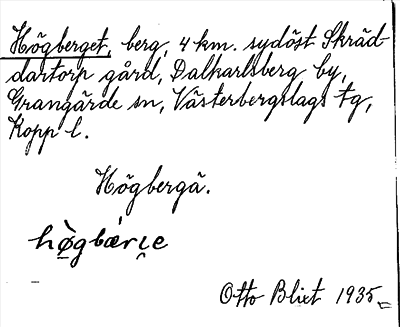 Högberget, berg, 4 km. sydöst Skräd-
dartorp gård, Dalkarlsberg by,
Grangärde sn, Västerbergslags tg,
Kopp l.
Högbergä.
hø̀gbæ̀rɩ̯e
Otto Blixt 1935.